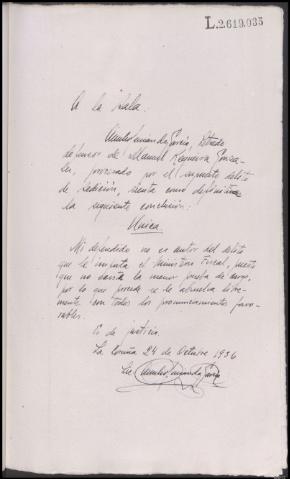 L.2619.035
A la Sala:
García, Letrado
defensor de Manuel Requeira Gonza-
lez, procesado por el supuesto delito
de sedición, sienta como definitiva
la siguiente conclusion:
Unica.
Mi defendido no es autor del delito
que le imputa el Ministerio Fiscal, puesto
que no existe la menor prueba de cargo,
por lo que procede se le absuelva libre-
mente con todos los pronunciamientos favo-
rables.
Es de justicia.
La Coruña 24 de Octubre 1936